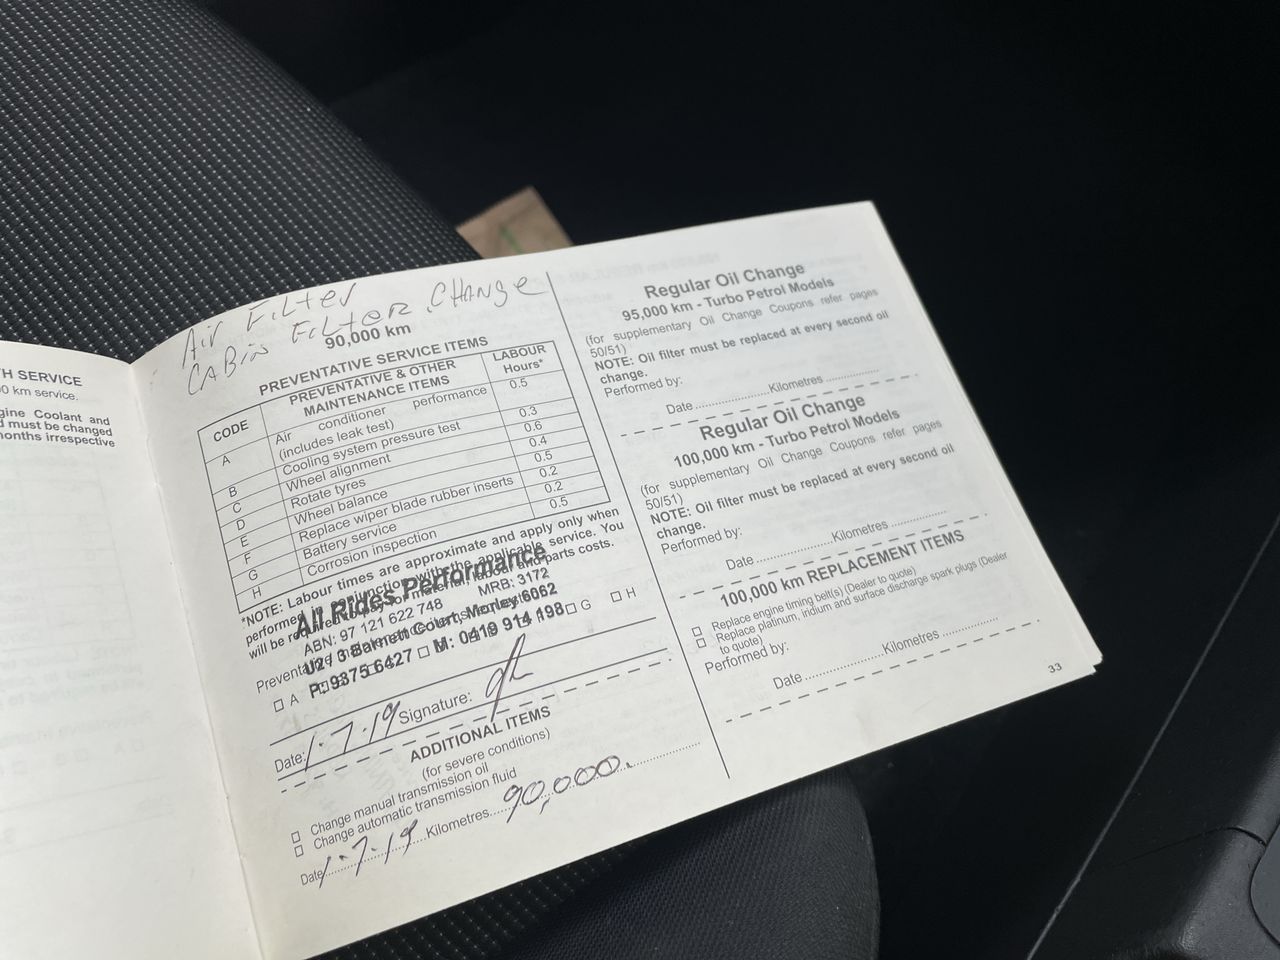 H SERVICE
0 km service.
gine Coolant and
d must be changed
months irrespective
Air Filter
CABin FilTER CHANge
90,000 km
PREVENTATIVE SERVICE ITEMS
CODE PREVENTATIVE & OTHER MAINTENANCE ITEMS LABOUR Hours*
A Air conditioner performance (includes leak test) 0.5
B Cooling system pressure test 0.3
C Wheel alignment 0.6
D Rotate tyres 0.4
E Wheel balance 0.5
F Replace wiper blade rubber inserts 0.2
G Battery service 0.2
H Corrosion inspection 0.5
*NOTE: Labour times are approximate and apply only when
performed in conjunction with the applicable service. You
will be required to pay for material, labour and parts costs.
All Rides Performance
ABN: 97 121 622 748 MRB: 3172
U2 / 3 Barnett Court, Morley 6062
P: 9375 6427 M: 0419 914 198
□ A □ G □ H
Date: 1.7.19 Signature:
ADDITIONAL ITEMS
(for severe conditions)
□ Change manual transmission oil
□ Change automatic transmission fluid
Date 1.7.19 Kilometres 90,000.
Regular Oil Change
95,000 km - Turbo Petrol Models
(for supplementary Oil Change Coupons refer pages
50/51)
NOTE: Oil filter must be replaced at every second oil
change.
Performed by:
Date ........................ Kilometres ..................
Regular Oil Change
100,000 km - Turbo Petrol Models
(for supplementary Oil Change Coupons refer pages
50/51)
NOTE: Oil filter must be replaced at every second oil
change.
Performed by:
Date ........................ Kilometres ..................
100,000 km REPLACEMENT ITEMS
□ Replace engine timing belt(s) (Dealer to quote)
□ Replace platinum, iridium and surface discharge spark plugs (Dealer
to quote)
Performed by:
Date ........................ Kilometres ..................
33